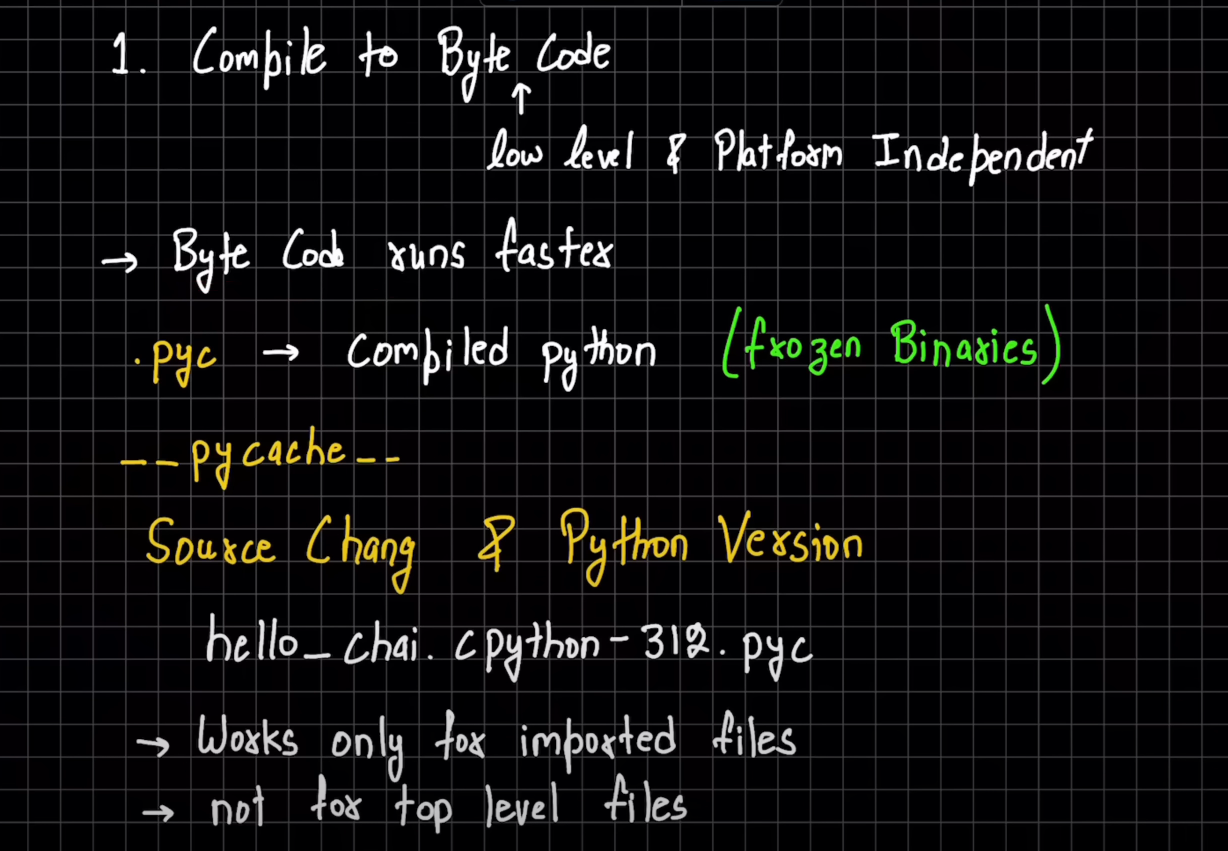 1. Compile to Byte Code
↑
low level & Platform Independent
→ Byte Code runs faster
.pyc → Compiled python (frozen Binaries)
--pycache--
Source Chang & Python Version
hello_chai.cpython-312.pyc
→ Works only for imported files
→ not for top level files